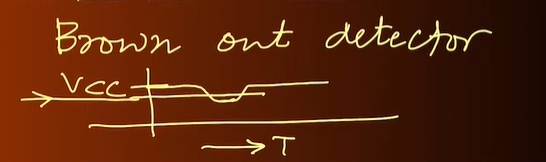 Brown out detector
VCC
T